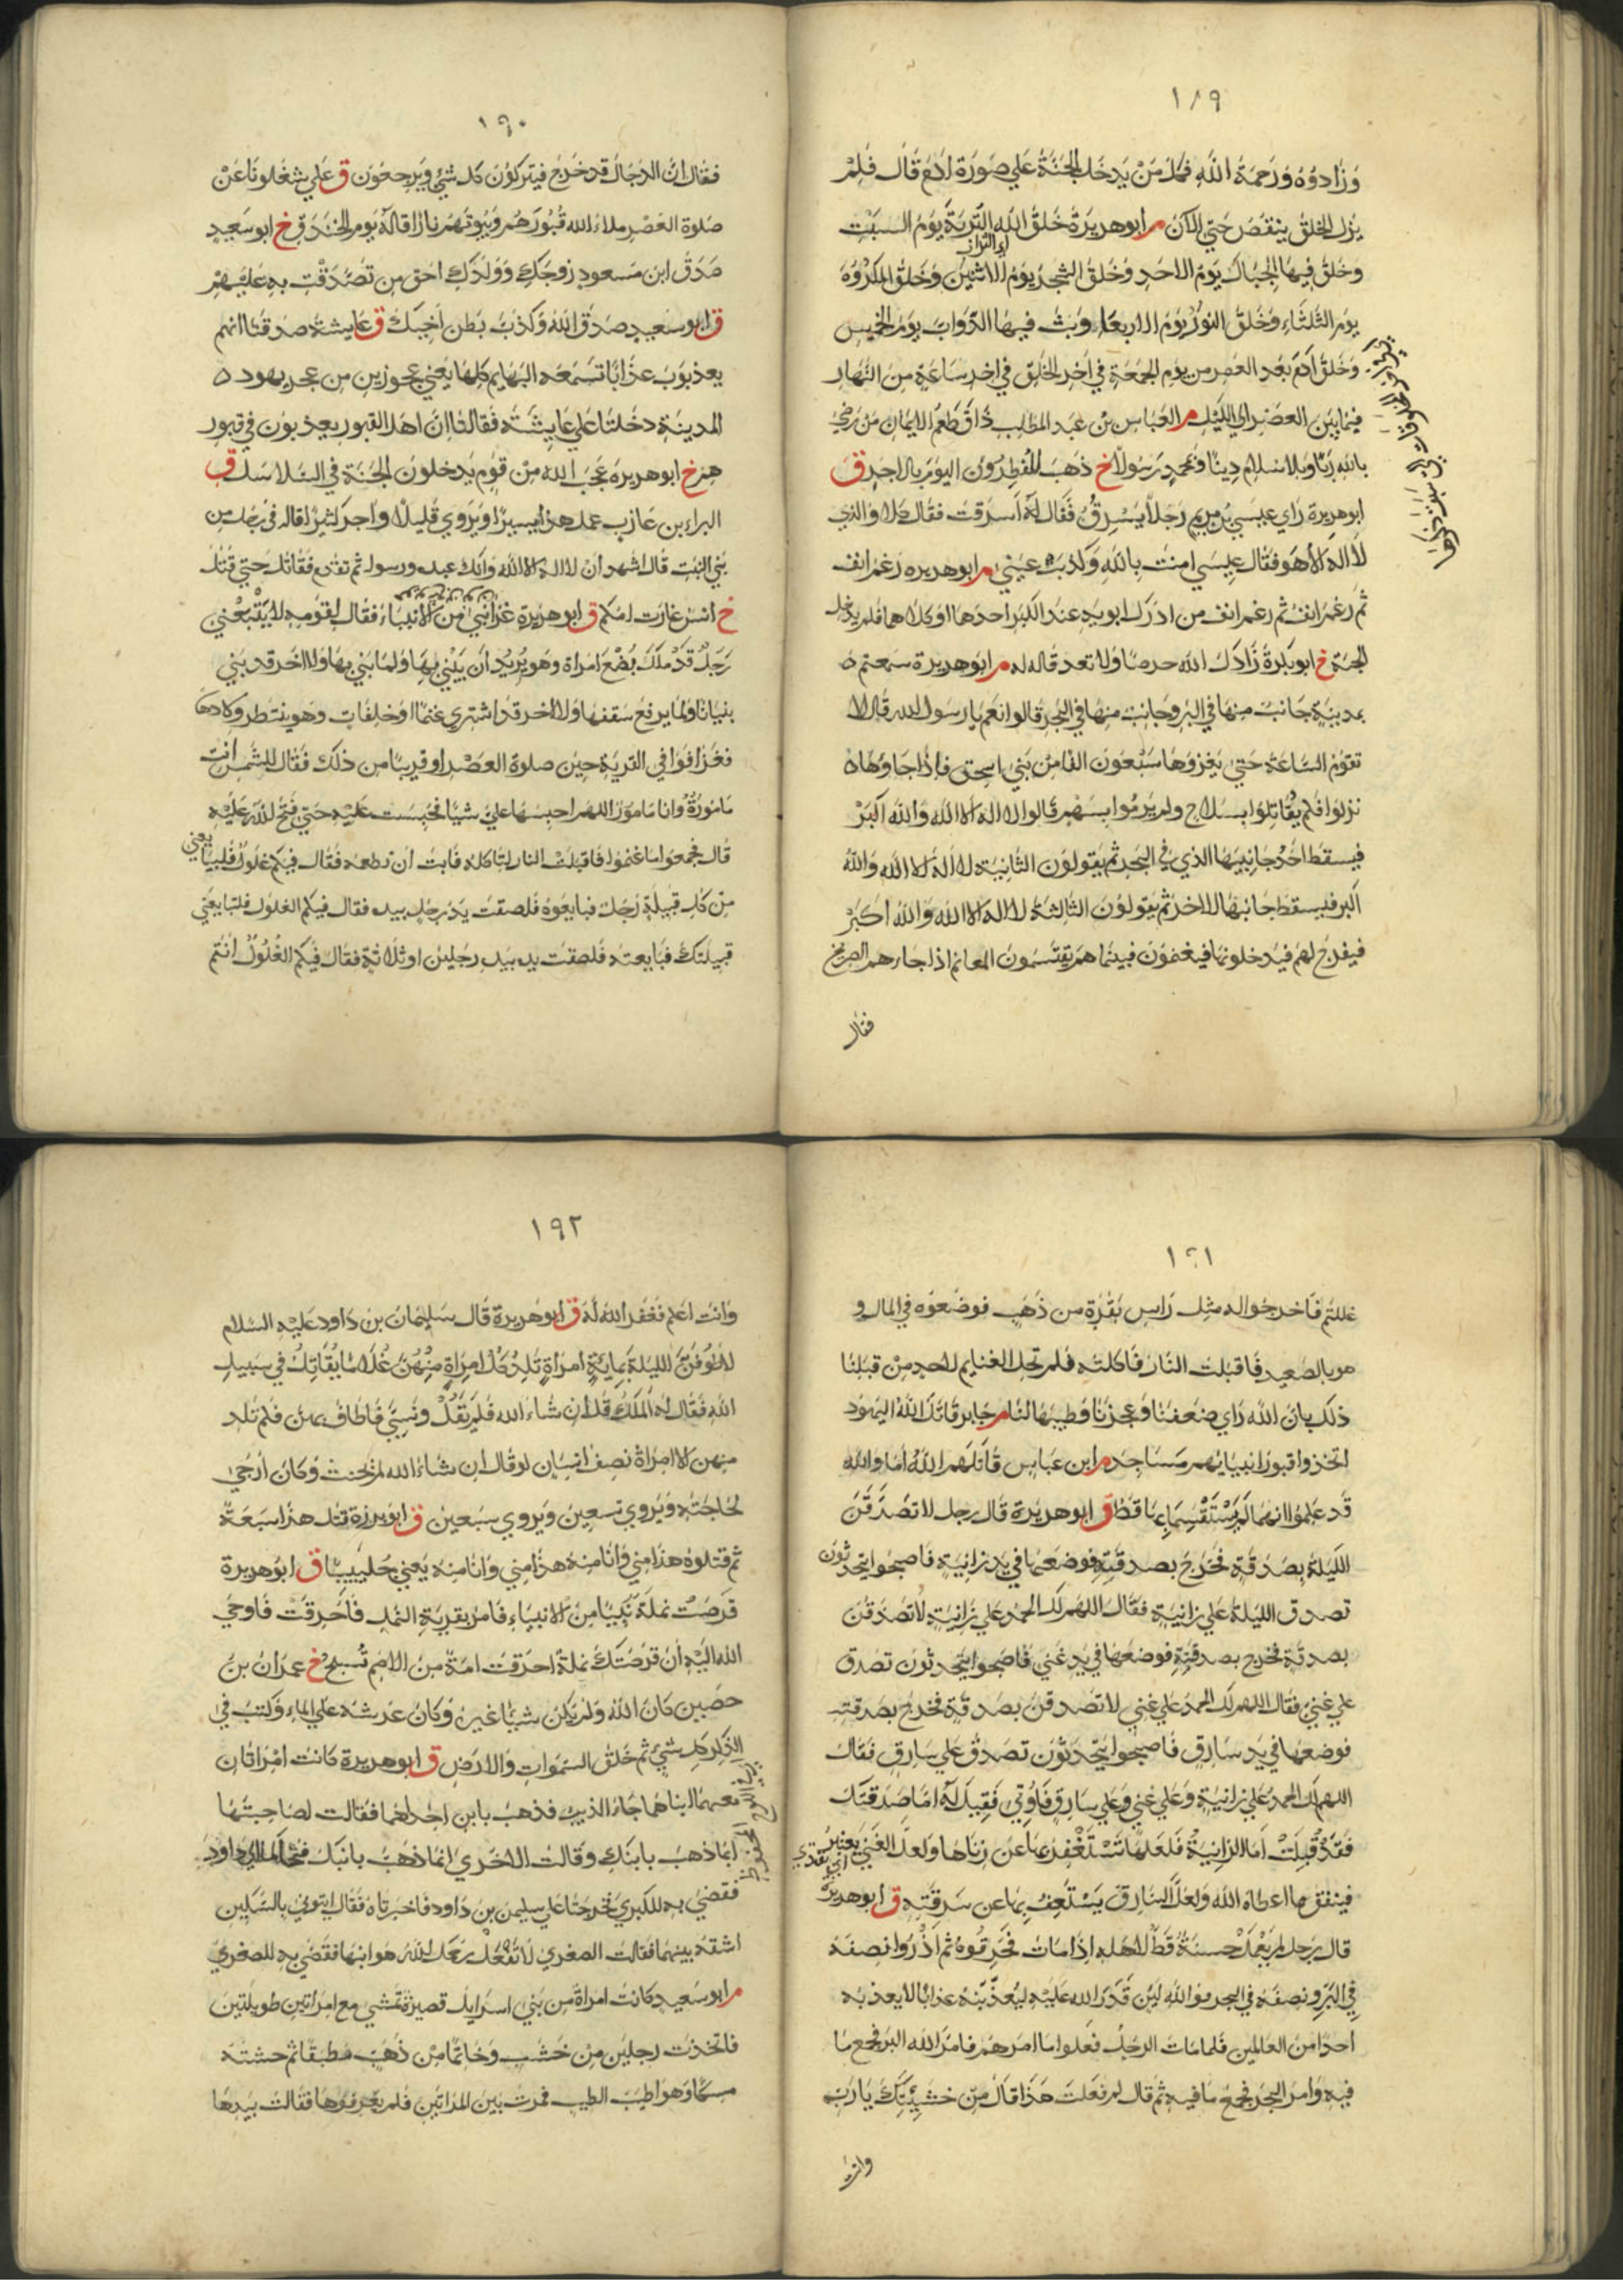 ١٨٩
وَزَادوُهُ وَرَحمَةُ اللَّهِ فَكُلُّ مَنْ يَدخُل الجَنَّةُ عَلي صُورَة ادَمُ قَال فَلمْ
يزل الخلقُ ينقصُ حَتي الآنَ م أبوهريرَةُ خَلقُ اللَّه التُّربَةَ يَوْمَ السبْت
اي التراب
وَخلقُ فيهَا الجبَالَ يَومَ الاحَدِ وَخَلقُ الشجرَ يومُ الاثنين وَخَلقُ المكرُوُهَ
يومَ الثلثَاءِ وَخَلقُ النورَ يوُمَ الاربعَا وبَثَّ فيهَا الدَّوابَّ يَومَ الخميس
وَخَلقُ ادَمَ بَعد العَصر من يومِ الجمعَةِ في اخر الخلق في اخر سَاعَةٍ منَ النهَار
فيمَا بَين العصْر الي الليْل م العَبَاس بن عَبد المطلب ذاق طعمُ الايمان مَن رضيَ
بالله ربًا وبالاسلام دينًا ومحمدٍ رَسُولًا خ ذهَبَ المُفطِرُون اليومَ بالاجر ق
ابوهريرة رَاي عيسَي بن مريم رَجلًا يَسْرِقُ فَقَال لَهُ أسَرَقت فقال كلا والذي
لا اله الا هو فقال عِيسَي امنتُ باللهِ وَكَذبَت عَيني م ابوهريره رَغمَ انف
ثم رَغمَ انف ثم رغم انف من ادرَك ابويهِ عندَ الكبَر احدهَما اوكلاهما فلم يدخل
الجنة خ ابوبكرةَ زَادَكَ اللَّه حرصًا وَلا تعد قاله له م ابوهريرة سمعتم
بمدينةٍ جَانبٌ منهَا في البرِّ وجَانبٌ منهَا في البَحر قالوا نعَم يا رَسول الله قال لا
تقوم السَّاعَة حتيَ يَغزوهَا سَبْعُونَ الفًا من بَني اسحق فإذَا جَاؤهَا
نزلوا فلم يُقاتِلوا بسلاحٍ ولم يَرمُوا بسَهم قالوا لا اله الا الله والله اكبَرْ
فيسقط احَدُ جَانِبَيهَا الذي في البَحر ثم يَقولونَ الثانيةَ لا اله الا الله واللهُ
اكبر فيسقطُ جانبهَا الاخرُ ثم يَقولونَ الثالثةَ لا اله الا الله والله اكبَرْ
فيفرجُ لهم فيدخلونها فيغنمُونَ فبينما هم يقتَسمونَ المغانم اذا جاءهم الصريخ
فقال
١٩٠
فقال انَّ الدجالَ قد خَرَجَ فيتركوُنَ كل شيٍ ويَرجعُونَ ق عَلي شغلونَا عَنْ
صَلوة العَصْر ملاءَ الله قُبُورَهُم وَبيُوتهُم نارًا قالهُ يَوم الخندَق خ ابوسَعيدٍ
صَدَقَ ابن مسعود زوجُكِ وَوَلدُكِ احق من تَصَدَّقتِ به عَليهِمْ
ق ابوسعيدٍ صدَقَ اللهُ وَكذبَ بَطن اخيكَ ق عَايشة صدقتا انهم
يعذبوَنَ عذَابًا تَسمَعه البهَايم كلهَا يعني عجوزين من عجز يهود
المدينَة دخلتا عَلي عَايشَة فقالتا ان اهلَ القبور يعذبونَ في قبور
هم خ ابوهريره عَجبَ الله منْ قومٍ يَدخلون الجنَة في السَّلاسل ق
البراءبن عَازب عملَ هذا يسيرًا ويَروي قليلًا واجر كثيرًا قاله في رجل من
بَني النبَّت قال اشهد ان لا اله الا الله وانك عبده ورسوله ثم تقدم فقاتل حتي قتل
خ انس غارَت امكم ق ابوهريرة غزَا نبيٌ من الانبيَاء فقال لقومه لا يَتْبعْني
رَجلٌ قد ملكَ بُضْعَ امراة وَهو يُريدُ أن يَبْنيَ بهَا وَلمَا يَبني بهَا ولا اخر قد بَني
بنيَانًا ولما يرفع سَقفهَا ولا اخر قد اشتري غنمًا او خلفَاتٍ وهو ينتَظر ولادهَا
فغزَا فدنا في القريَة حين صلوة العَصْر او قريبًا من ذلك فقال للشمس انت
مَامُورَةٌ وانا مَامورٌ اللهم احبسهَا عليَ شيًا فحبسَت عَليه حتي فتحَ اللهُ عَليهِ
قال فجمعوا ما غنمُوا فاقبلتْ النار لتاكله فابَت ان تطعمَه فقالَ فيكم غلولٌ فليبَايعني
من كل قبيلةٍ رَجل فبايعوُه فلصقت يَد رجل بيده فقال فيكم الغلول فلتبايعني
قبيلتكَ فبَايعته فلصقت يد بيد رجلين او ثلاثة فقال فيكم الغُلولُ انتم
١٩١
غللتم فاخرجوا له مثل راس بَقرَة من ذهَبٍ فوضعوُه في المالِ و
هو بالصَّعيد فاقبلت النَّارُ فاكلته فلم تحل الغنايم لاحدٍ منْ قبلنَا
ذلك بانَّ الله رَاي ضعفنا وعجزنَا فطيبَهَا لنا م جابر قاتلَ اللهُ اليهودَ
اتخذوا قبورَ انبيايهم مَسَاجدَ م ابن عباس قاتَلَهم اللَّهُ أمَا واللهِ
قد عَلمُوا انهما لم يَستقسِمَا بهَا قط ق ابوهريرة قال رجل لاتصَدَّقنَ
الليلةُ بصَدقةٍ فخرَجَ بصدقتِهِ فوضعَهَا في يَد زانيَةٍ فاصبحُوا يتحدثونَ
تصدق الليَلةُ عَلي زانيةٍ فقال اللهُم لكَ الحمدُ عَلي زَانيةٍ لاتَصَدَقنَ
بصدقةٍ فخرج بصدقتهِ فوضعهَا في يد غَنيٍ فاصبحوا يتحدثون تصدق
علي غَنيٍ فقال اللهم لك الحمدُ علي غنيٍ لاتصدقنَ بصدقةٍ فخرجَ بصَدقتهِ
فوضعهَا في يَد سَارقٍ فاصبحوا يتحدثون تصدق علي سَارقٍ فقالَ
اللهم لكَ الحمدُ عَلي زانيةٍ وعلي غني وَعَلي سارقٍ فاُوتيَ فقيلَ لهُ امَا صَدَقتكَ
فقَدْ قُبلَتْ امَا الزانيةُ فلعَلهَا تسْتَغْفِرُ بهَا عن زناهَا ولعلَ الغني يَعتبرُ
فينفق مما اعطاه الله ولعلَّ السارقَ يَستعفُ بهَا عن سَرقَتِهِ ق ابوهريرة
قال رَجل لم يعملْ حسنةً قطُّ لاهله اذا ماتَ فحرقوهُ ثم اذرُوا نصفهُ
في البرِّ ونصفهَ في البحر فوَ اللهِ لئن قدَرَ الله عَليه ليُعذّبَنَّهُ عذابًا لا يعذبه
احدًا من العالمين فلما مَات الرجلُ فعَلوا ما امرهم فامرَ الله البر فجمع مَا
فيهِ وامرَ البحرَ فجمعَ مَا فيهِ ثم قال لم فعَلتَ هَذَا قال منْ خشيتكَ يا ربِ
وانت
١٩٢
وَانتَ اعلم فغفر الله لَهُ ق ابوهريرة قال سليمَانُ بن دَاود عَليْهِ السلام
لاطُوفَنَّ الليلةَ بمايَةِ امرَأةٍ تَلِدُ كلُّ امرأةٍ مِنْهُنَّ غُلامًا يُقَاتلُ في سَبيلِ
اللهِ فقال له المَلَكُ قل ان شَاءَ الله فلم يَقُلْ ونسيَ فاطافَ بهنَ فلم تلد
منهن الا امرَاةٌ نصفَ انسَانٍ لوقال ان شَاءَ الله لم يَحنث وَكانَ أرْجيَ
لحاجتهِ ويُروي تسعينَ ويروي سَبعينَ ق ابوبرزة قتل هذا سَبعَةً
ثم قتلوُه هذا مني وَانا منهُ هذا مني وَانَا منهُ يَعني جُليبيبًا ق ابوهريرة
قرَصَتْ نملةٌ نَبيًا منَ الانبيَاءِ فامرَ بقريةِ النَّمل فاُحْرقتْ فاوحيَ
الله اليه أن قرصتكَ نملةٌ احرَقتَ امةً منَ الامَم تُسبحُ خ عمرَان بنَ
حصَين كان اللهُ وَلم يَكن شيٌ غيره وَكانَ عَرشه عَلي الماء وَكتبَ في
الذِّكرِ كل شيٍ ثم خَلقَ السمَوات والارضِ ق ابوهريرة كانت امْرَاتَان
معهمَا ابناهمَا جاء الذيبُ فذهَبَ بابن احدَاهمَا فقالت لصَاحبتهَا
انما ذهبَ بابنك وقالت الاخرَي انما ذهبَ بابنكَ فتحاكما الي داود
فقضَي به للكبري فخرجتَا علي سليمن بن دَاود فاخبرتاه فقال ايتوني بالسكين
اشقه بينهما فقالت الصغري لا تفعلْ يَرحَمكَ اللهُ هو ابنهَا فقضي به للصغري
م ابوسعيد كانت امراةٌ من بَني اسرَايل قصيرَة تمشي مع امرَاتين طويلتين
فاتخذت رجلين منْ خشب وَخاتمًا منْ ذهَبٍ مطبقًا ثم حشته
مسكًا وهو اطيبُ الطيب فمرت بين المراتين فلم يعرفوهَا فقالت بيدهَا